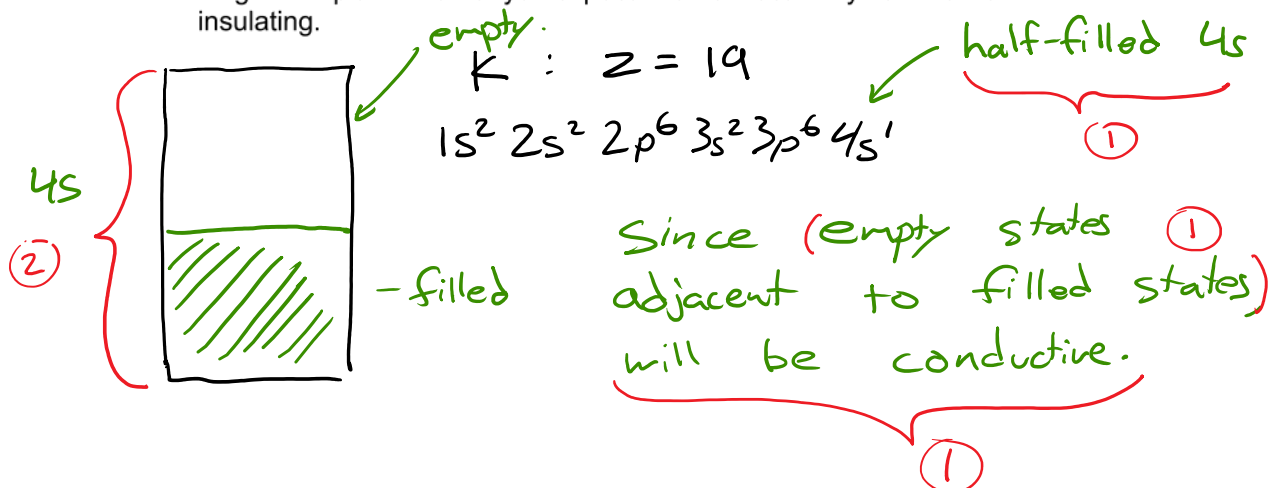 insulating.
empty.
K : Z = 19
half-filled 4s
①
1s² 2s² 2p⁶ 3s² 3p⁶ 4s¹
4s
②
-filled
Since (empty states ①
adjacent to filled states)
will be conductive.
①